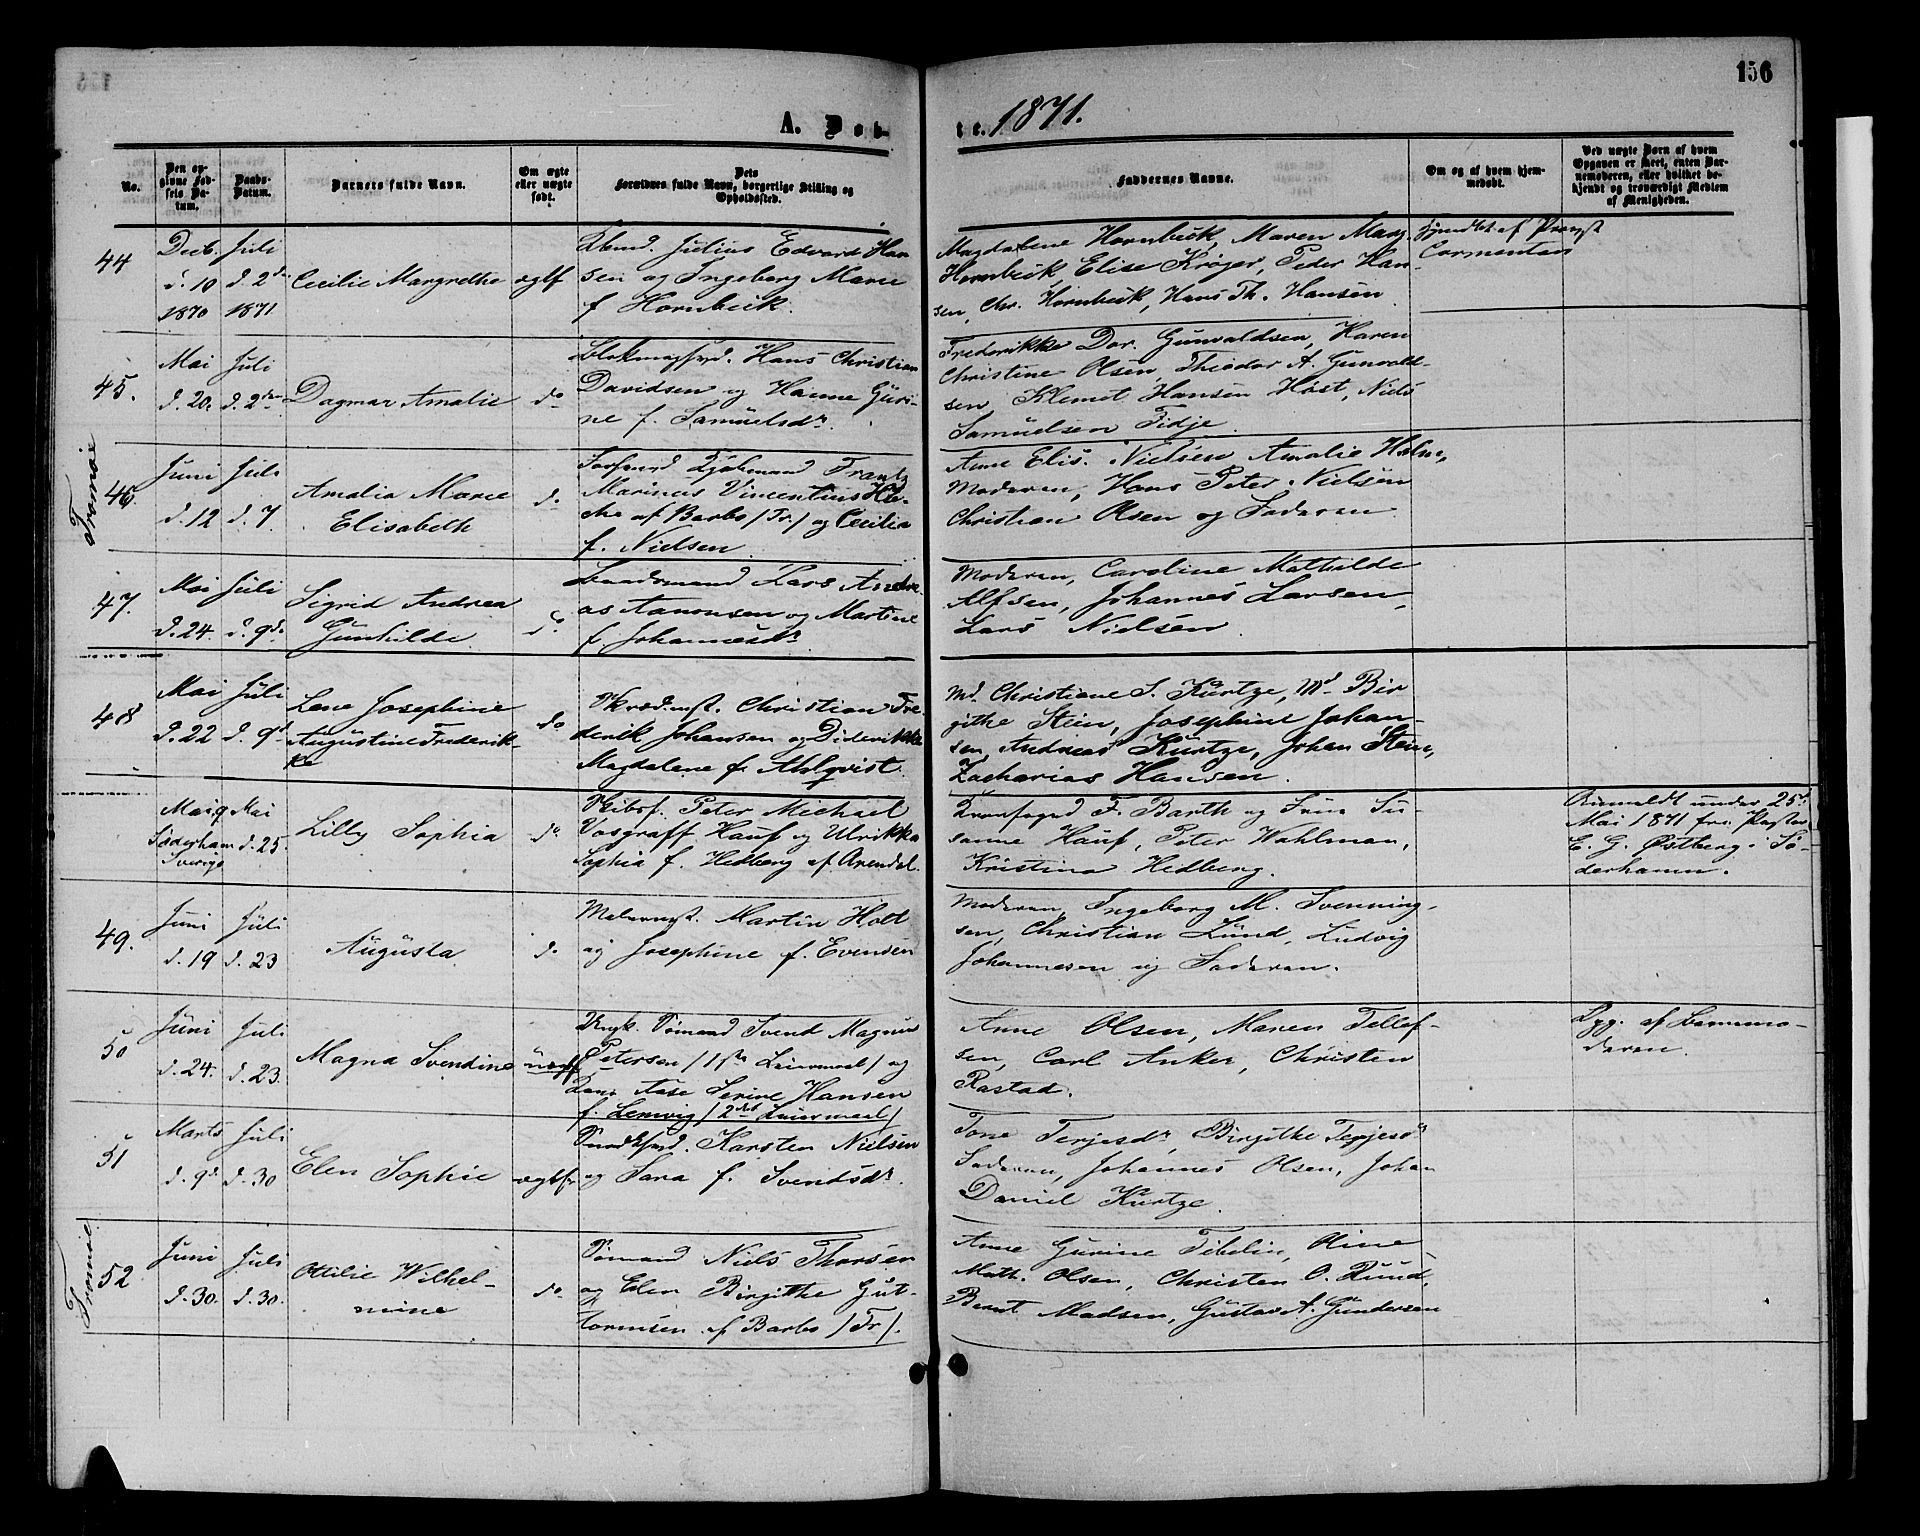 156
A. Døb-
te. 1871.
No.
Den opgivne Fødsels Datum.
Daabs-Datum.
Barnets fulde Navn.
Om ægte eller uægte født.
Dets Forældres fulde Navn, borgerlige Stilling og Opholdssted.
Faddernes Navne.
Om og af hvem hjemmedøbt.
Ved uægte Børn af hvem Opgaven er skeet, enten Barnemoderen, eller hvilket bekjendt og troværdigt Medlem af Menigheden.
44
Decb. d. 10 1870
Juli d. 2den 1871
Cecilie Margrethe
ægtf
Julius Edvard Han
sen og Ingeborg Marie
f. Hornbeck.
Magdalene Hornbeck, Maren Marg.
Hornbeck, Elise Krøger, Peder Han-
sen, Chr. Hornbeck, Hans Th. Hansen
af Provst
45.
Mai d. 20.
Juli d. 2den
Dagmar Amalie
do
Hans Christian
Davidsen og Hanne Guri-
ne f. Samuelsdr.
Frederikke Dor. Gunvaldsen, Karen
Christine Olsen, Theodor A. Gunvald-
sen, Klemet Hansen Høst, Niels
Samuelsen Fidje.
Tromøe
46.
Juni d. 12
Juli d. 7.
Amalia Marie
Elisabeth
do.
Frantz
Marinus Vincentius
af Barbo (Tr.) og Cecilia
f. Nielsen
Anne Elis. Nielsen Amalie Holm,
Moderen, Hans Peter Nielsen
Christian Olsen og Faderen
47.
Mai d. 24.
Juli d. 9de
Sigrid Andrea
Gunhilde
do.
Baadsmand Lars Andre-
as Aanonsen og Martine
f. Johannesdr
Moderen, Caroline Mathilde
Alfsen, Johannes Larsen,
Lars Nielsen.
48
Mai d. 22
Juli d. 9d
Lene Josephine
Augustine Frederik-
ke
do
Skrædmst. Christian Fre-
derik Johansen og Diderikke
Magdalene f. Ahlqvist.
Md. Christiane S. Kurtze, Md. Bir
githe Stein, Josephine Johan-
sen, Andreas Kurtze, Johan Stein,
Zacharias Hansen.
Mai 9 Søderham Sverige
Mai d. 25.
Lilly Sophia
do
Skibsf. Peter Michael
Vosgraff Hauf og Ulrikka
Sophia f. Hedberg af Arendal.
F. Barth og Frue Su-
sanne Hauf, Peter Wahlman,
Kristina Hedberg.
Anmeldt under 25d
Mai 1871 fra Pastor
E. G. Østberg i Sø-
derhamn.
49.
Juni d. 19
Juli d. 23
Augusta
do.
Malermst. Martin Holt
og Josephine f. Evensen
Moderen, Ingeborg M. Svenning-
sen, Christian Lund, Ludvig
Johannesen og Faderen.
50
Juni d. 24.
Juli d. 23.
Magna Svendine
uægtf
Ungk. Sømand Svend Magnus
Petersen (1ste Leiermaal) og
Aase Serine Hansen
f. Lemvig (2det Leiermaal)
Anne Olsen, Maren Tellef-
sen, Carl Anker, Christen
Rastad.
Opg. af Barnemo-
deren.
51
Marts d. 9de
Juli d. 30
Elen Sophie
ægtf.
Karsten Nielsen
og Sara f. Svendsdr.
Tone Terjesdr, Birgithe Terjesdr
Faderen, Johannes Olsen, Johan
Daniel Kurtze.
Tromøe
52
Juni d. 30.
Juli d. 30.
Ottilie Wilhel-
mine
do
Sømand Niels Thorsen
og Elen Birgithe Gut-
tormsen af Barbo (Tr).
Anne Gurine Fibelin, Oline
Math. Olsen, Christen O. Ruud,
Bernt Madsen, Gustav A. Gundersen